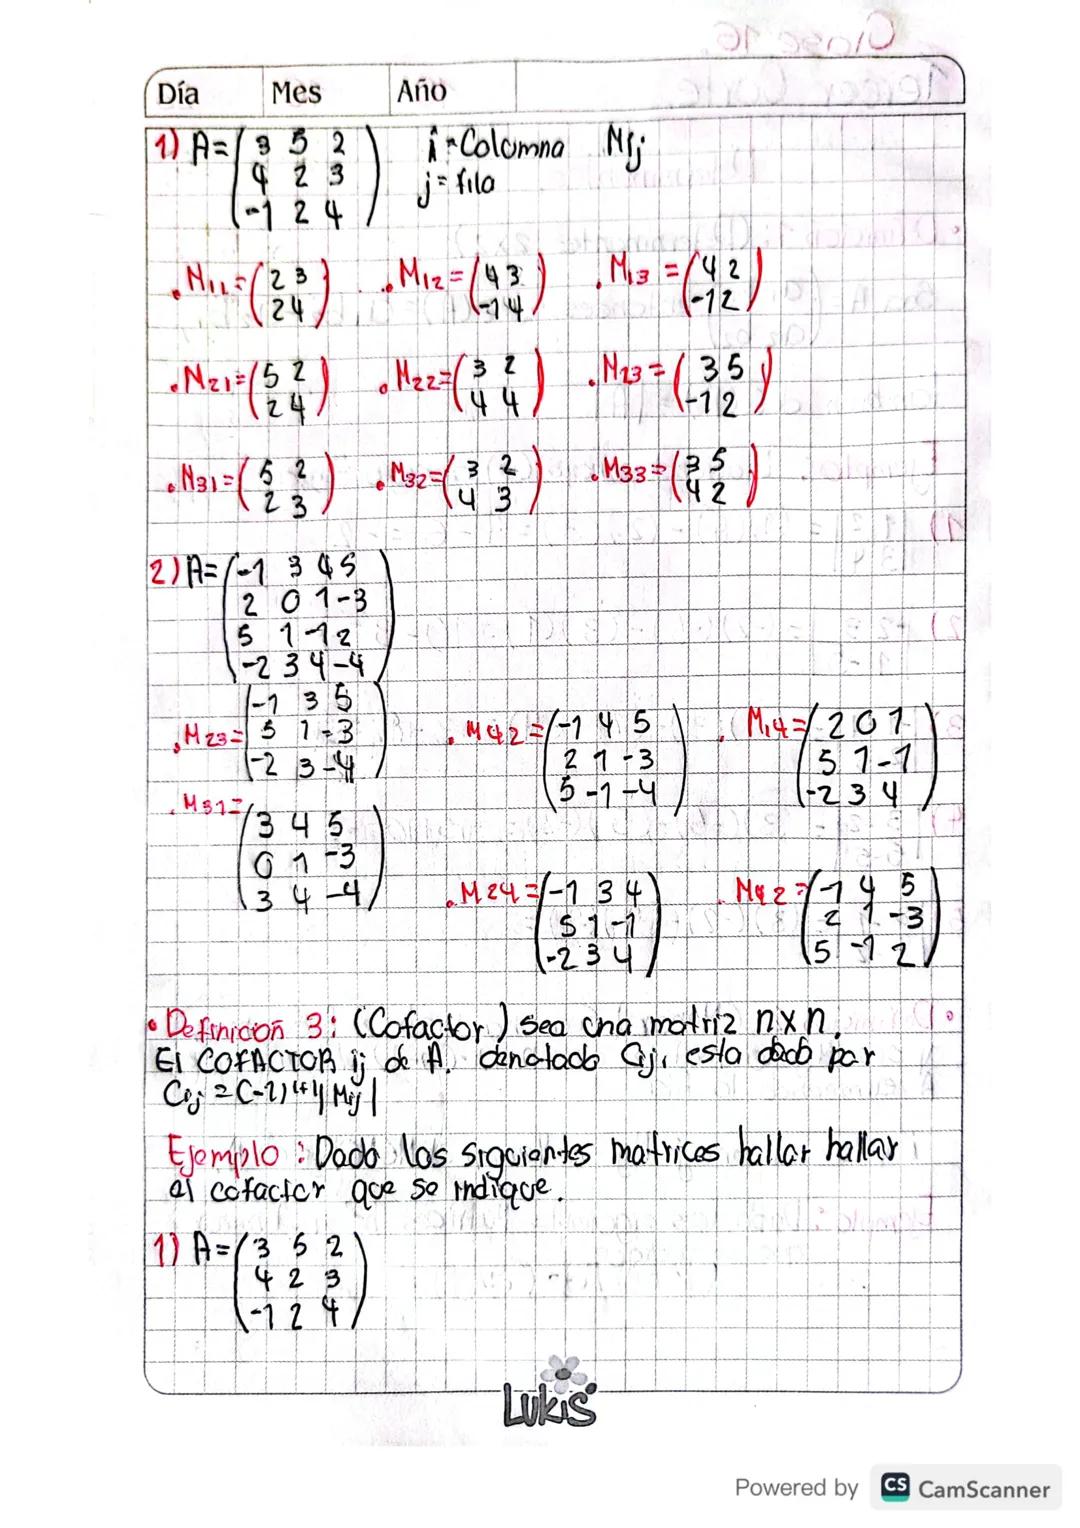 Día Mes Año
1) A=(3 5 2    i = Columna    Mij
4 2 3    j = fila
-1 2 4)
. M11=(2 3    . M12=(4 3    . M13=(4 2
2 4)    -1 4)    -1 2)
. M21=(5 2    . M22=(3 2    . M23=(3 5
2 4)    4 4)    -1 2)
. M31=(5 2    . M32=(3 2    . M33=(3 5
2 3)    4 3)    4 2)
2) A=(-1 3 4 5
2 0 1 -3
5 1 -1 2
-2 3 4 -4)
. M23=(-1 3 5    . M42=(-1 4 5    . M14=(2 0 1
5 1 -3    2 1 -3    5 1 -1
-2 3 -4)    5 -1 -4)    -2 3 4)
. M31=(3 4 5
0 1 -3
3 4 -4)
. M24=(-1 3 4    . M42=(-1 4 5
5 1 -1    2 1 -3
-2 3 4)    5 -1 2)
• Definicion 3: (Cofactor) sea una matriz nxn.
El COFACTOR ij de A. denotado Cij, esta dado por
Cij = (-1) i+j |Mij|
Ejemplo : Dado las siguientes matrices hallar hallar
el cofactor que se indique.
1) A=(3 5 2
4 2 3
-1 2 4)
Lukis
Powered by CS CamScanner